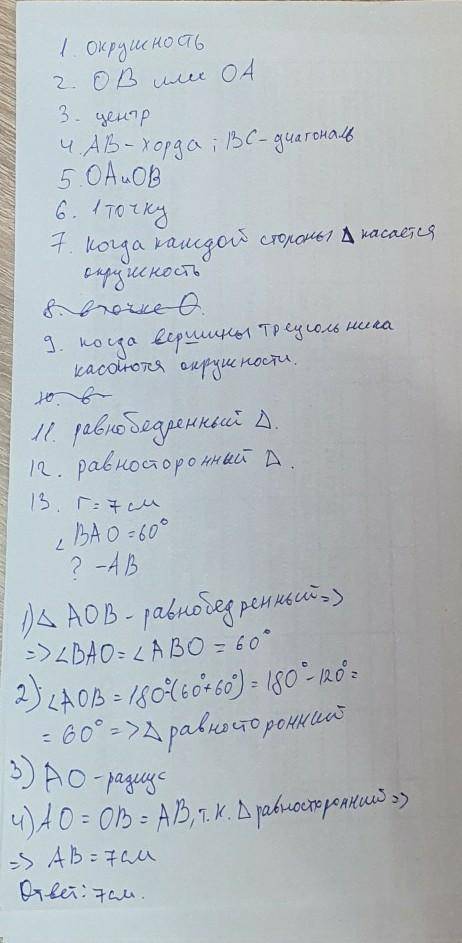 1. окружность
2. ОВ или ОА
3. центр
4. АВ - хорда ; ВС - диагональ
5. ОА и ОВ
6. 1 точку
7. когда каждой стороны Δ касается
окружность
8. в точке О.
9. когда вершины треугольника
касаются окружности.
10. в
11. равнобедренный Δ.
12. равносторонный Δ.
13. r = 7 см
∠ ВАО = 60°
? - АВ
1) Δ АОВ - равнобедренный =>
=> ∠ВАО = ∠АВО = 60°
2) ∠АОВ = 180°(60°+60°) = 180° - 120° =
= 60° => Δ равносторонний
3) АО - радиус
4) АО = ОВ = АВ, т.к. Δ равносторонний =>
=> АВ = 7 см
Ответ: 7 см.